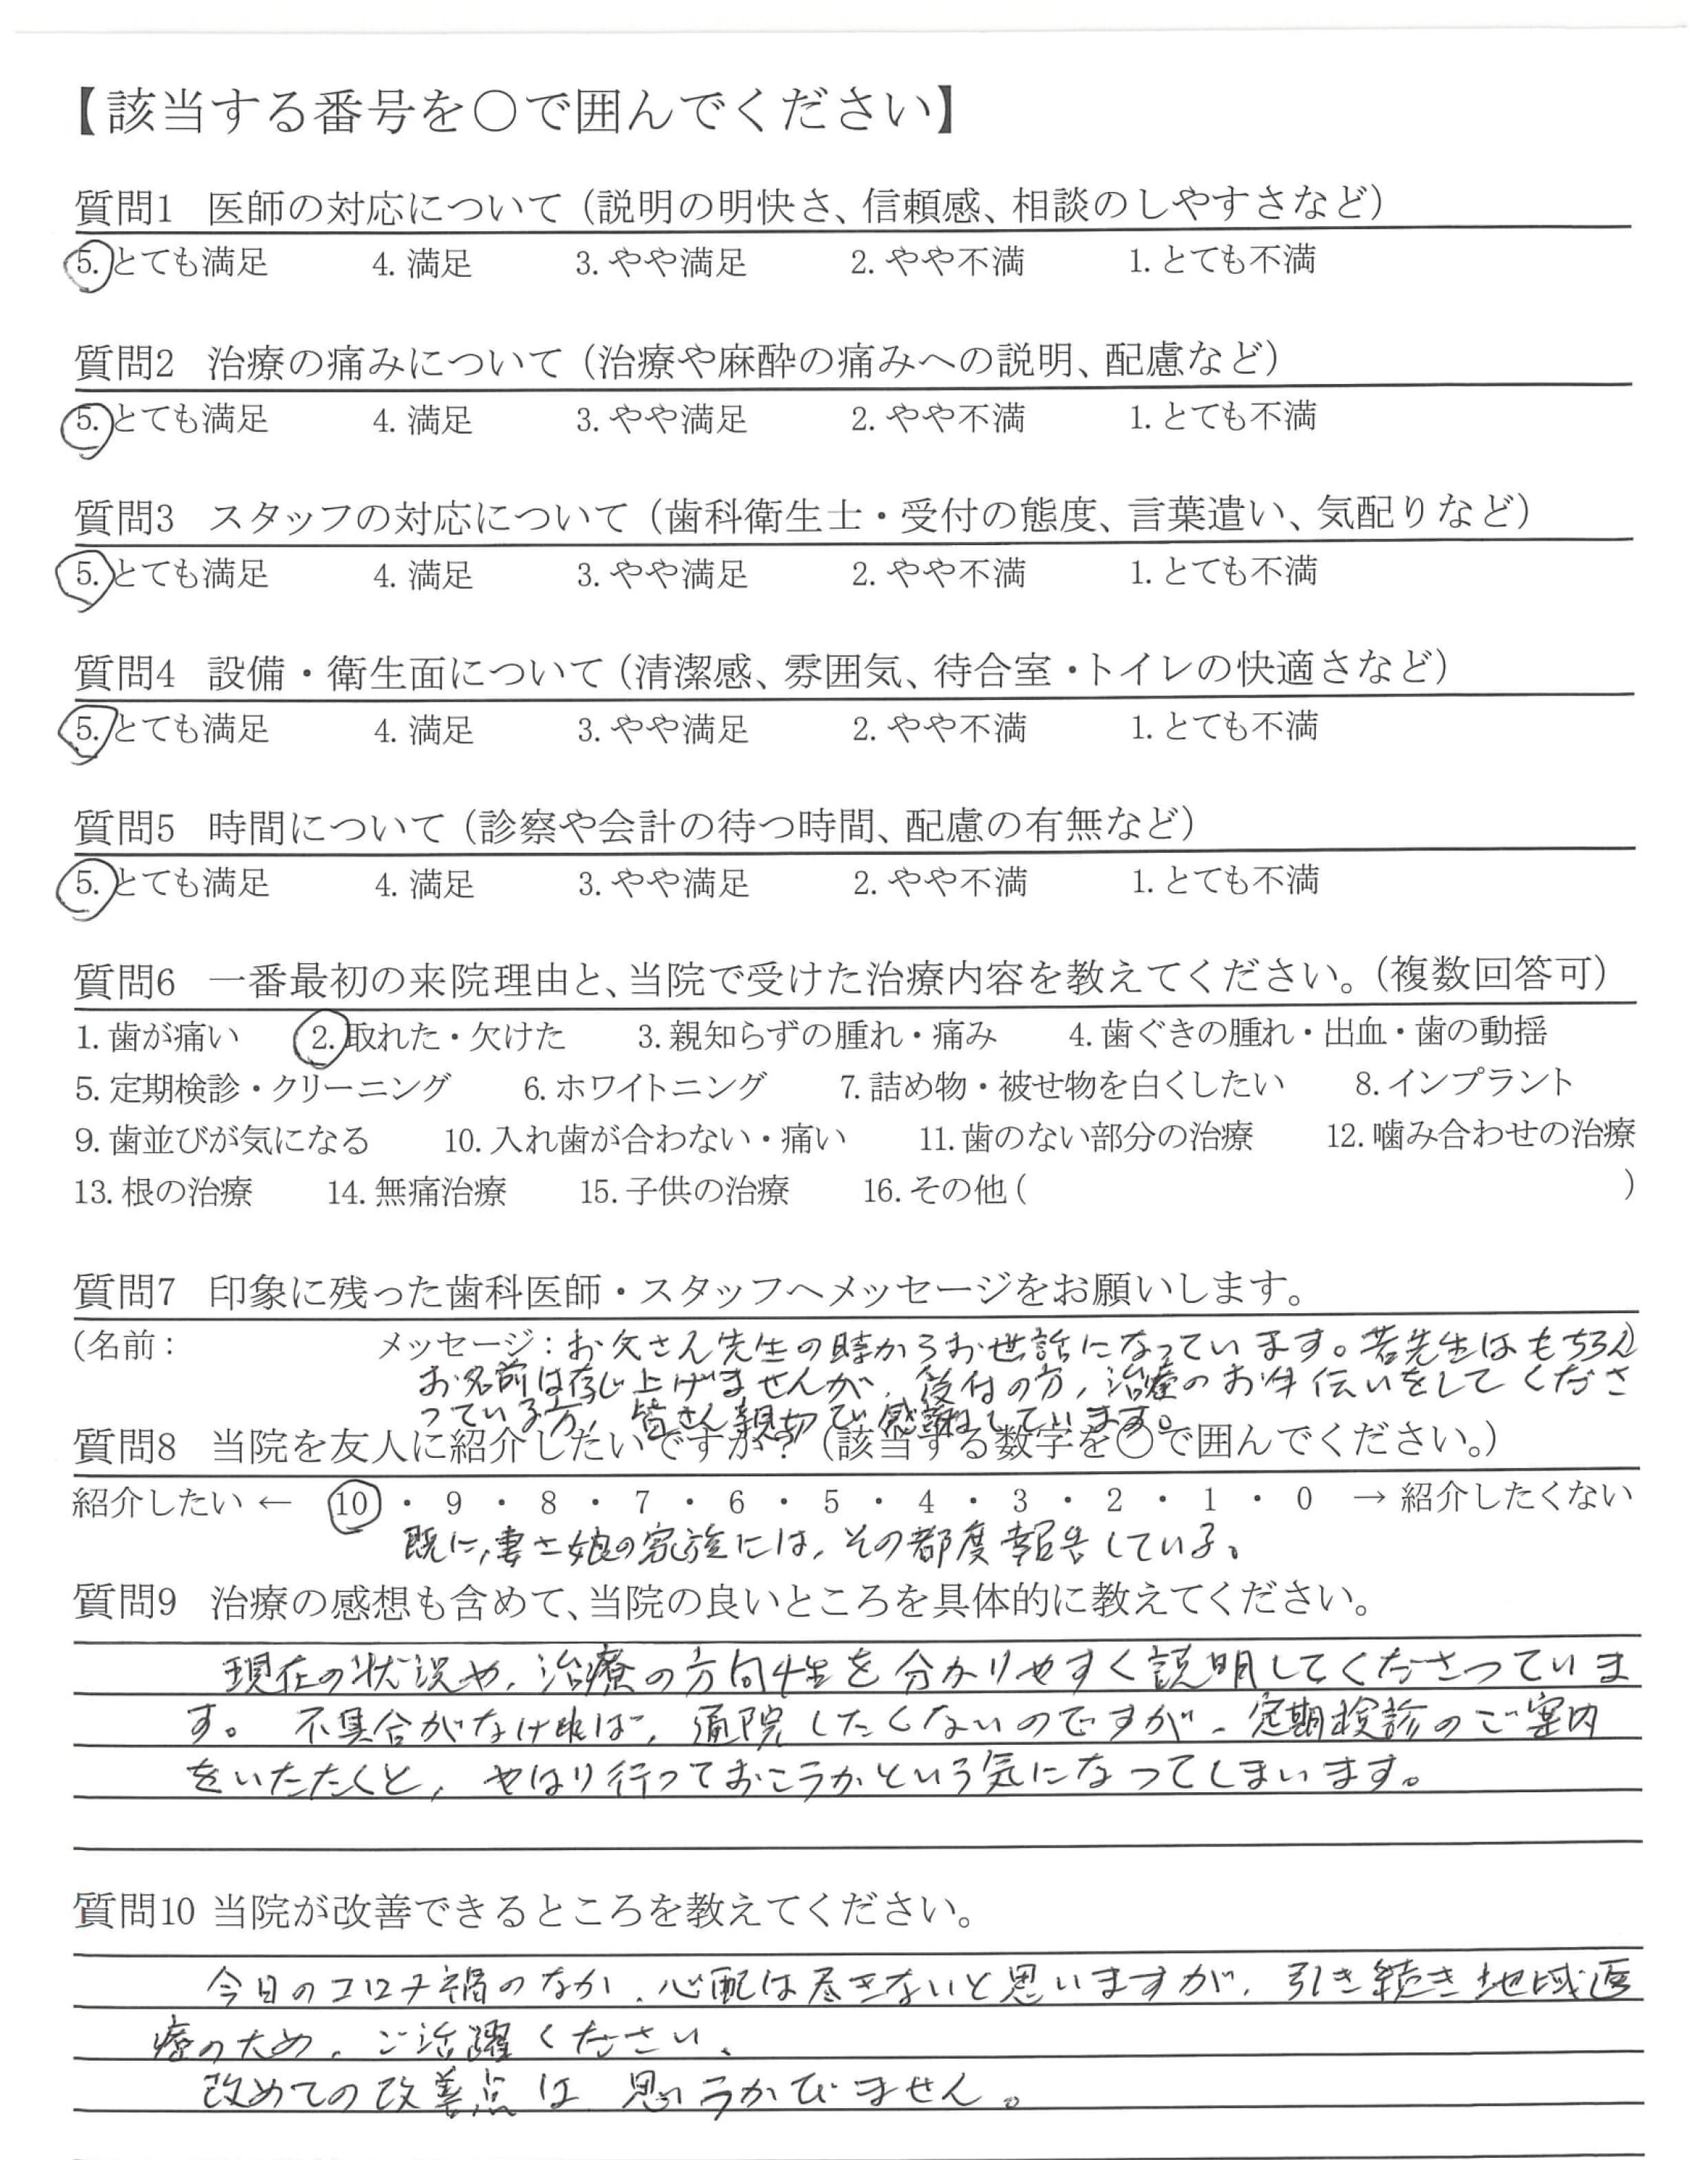 【該当する番号を○で囲んでください】
質問1 医師の対応について（説明の明快さ、信頼感、相談のしやすさなど）
5. とても満足 4. 満足 3. やや満足 2. やや不満 1. とても不満
質問2 治療の痛みについて（治療や麻酔の痛みへの説明、配慮など）
5. とても満足 4. 満足 3. やや満足 2. やや不満 1. とても不満
質問3 スタッフの対応について（歯科衛生士・受付の態度、言葉遣い、気配りなど）
5. とても満足 4. 満足 3. やや満足 2. やや不満 1. とても不満
質問4 設備・衛生面について（清潔感、雰囲気、待合室・トイレの快適さなど）
5. とても満足 4. 満足 3. やや満足 2. やや不満 1. とても不満
質問5 時間について（診察や会計の待つ時間、配慮の有無など）
5. とても満足 4. 満足 3. やや満足 2. やや不満 1. とても不満
質問6 一番最初の来院理由と、当院で受けた治療内容を教えてください。（複数回答可）
1. 歯が痛い 2. 取れた・欠けた 3. 親知らずの腫れ・痛み 4. 歯ぐきの腫れ・出血・歯の動揺
5. 定期検診・クリーニング 6. ホワイトニング 7. 詰め物・被せ物を白くしたい 8. インプラント
9. 歯並びが気になる 10. 入れ歯が合わない・痛い 11. 歯のない部分の治療 12. 噛み合わせの治療
13. 根の治療 14. 無痛治療 15. 子供の治療 16. その他（ ）
質問7 印象に残った歯科医師・スタッフへメッセージをお願いします。
（名前： メッセージ：お父さん先生の時からお世話になっています。若先生はもちろん
お名前は存じ上げませんが、受付の方、治療のお手伝いをしてくださ
っている方、皆さん親切で感謝しています。
質問8 当院を友人に紹介したいですか？（該当する数字を○で囲んでください。）
紹介したい ← 10 ・ 9 ・ 8 ・ 7 ・ 6 ・ 5 ・ 4 ・ 3 ・ 2 ・ 1 ・ 0 → 紹介したくない
既に、妻と娘の家族には、その都度報告している。
質問9 治療の感想も含めて、当院の良いところを具体的に教えてください。
現在の状況や、治療の方向性を分かりやすく説明してくださっていま
す。 不具合がなければ、通院したくないのですが、定期検診のご案内
をいただくと、やはり行っておこうかという気になってしまいます。
質問10 当院が改善できるところを教えてください。
今日のコロナ禍のなか、心配は尽きないと思いますが、引き続き地域医
療のため、ご活躍ください。
改めての改善点は 思いうかびません。